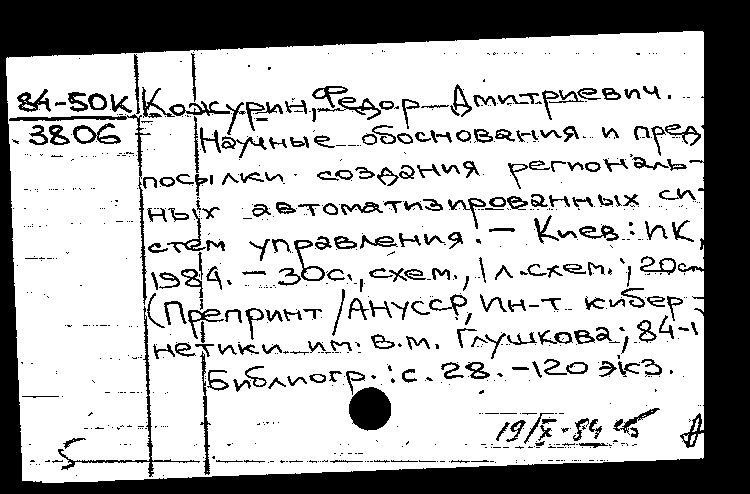 84-50К Кожурин, Федор Дмитриевич.
3806 Научные обоснования и пред
посылки создания региональ-
ных автоматизированных си-
стем управления. — Киев: ИК,
1984. — 30с., схем., 1 л. схем.; 20см
(Препринт / АН УССР, Ин-т кибер-
нетики им. В.М. Глушкова; 84-1
Библиогр.: с. 28. — 120 экз.
19/X-84
5